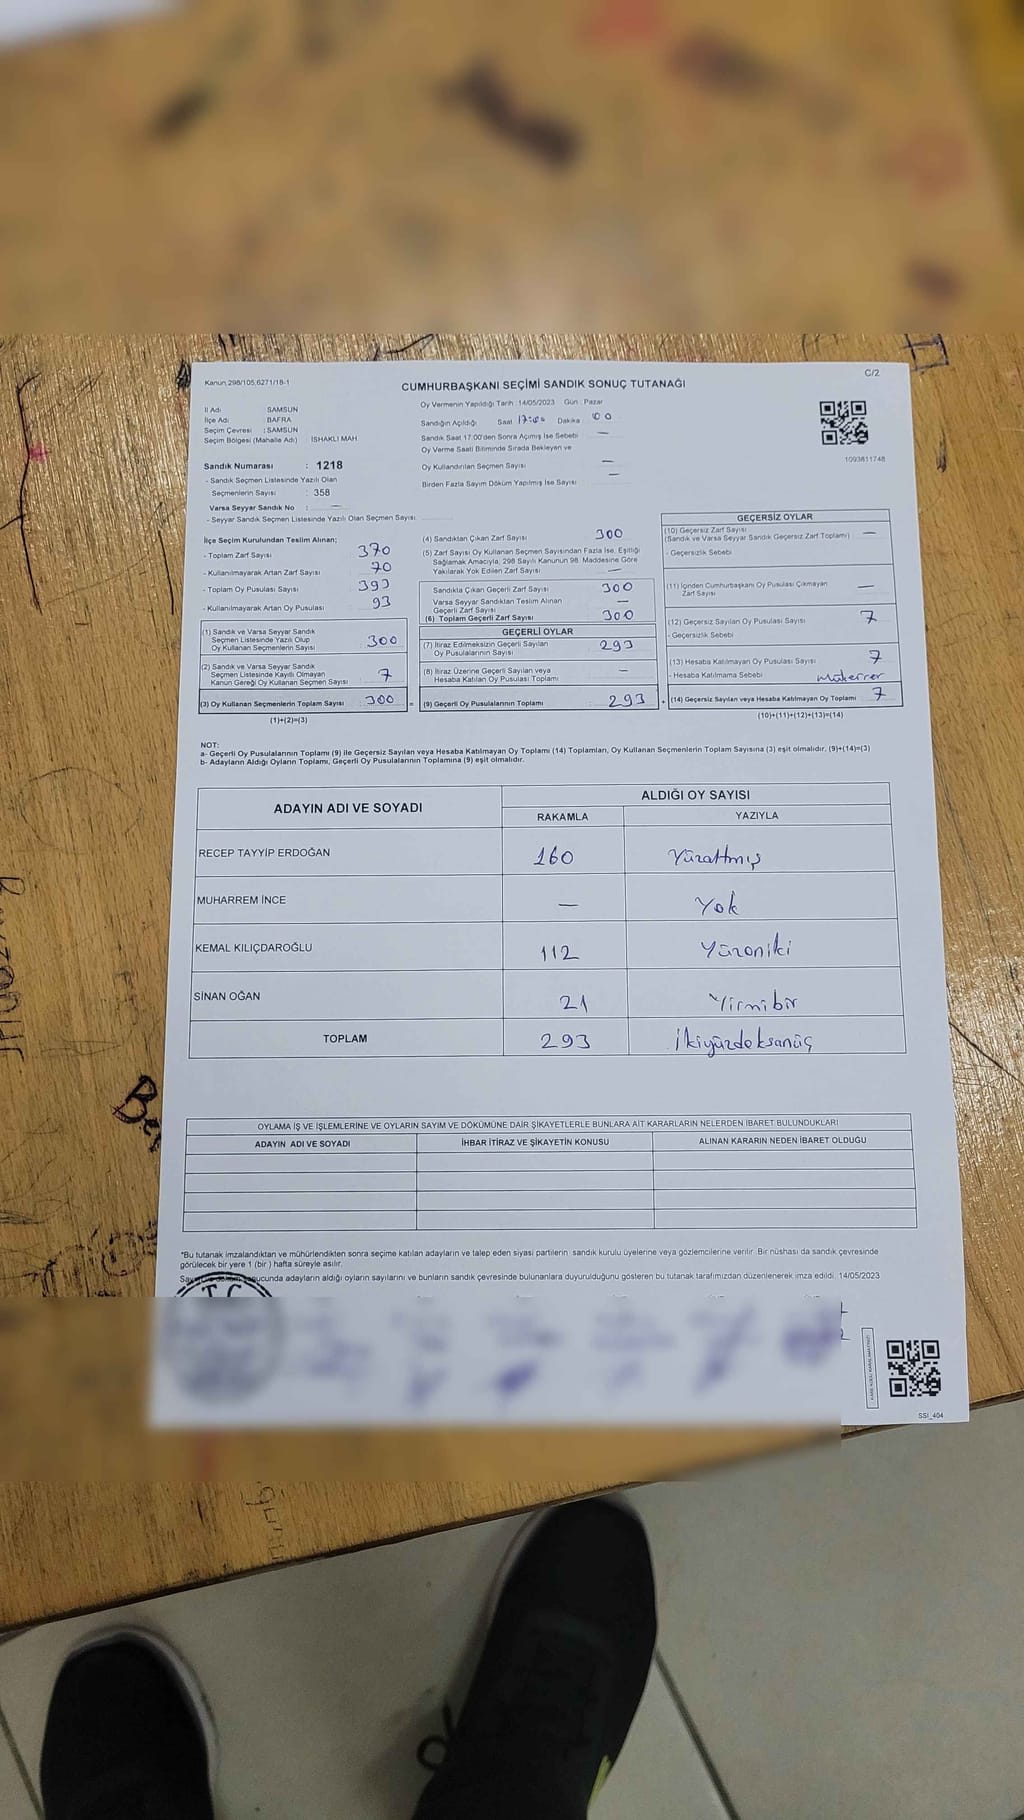 Kanun:298/105,6271/18-1
C/2
CUMHURBAŞKANI SEÇİMİ SANDIK SONUÇ TUTANAĞI
İl Adı : SAMSUN
İlçe Adı : BAFRA
Seçim Çevresi : SAMSUN
Seçim Bölgesi (Mahalle Adı) : İSHAKLI MAH.
Sandık Numarası : 1218
- Sandık Seçmen Listesinde Yazılı Olan
Seçmenlerin Sayısı : 358
Varsa Seyyar Sandık No : —
- Seyyar Sandık Seçmen Listesinde Yazılı Olan Seçmen Sayısı:
Oy Vermenin Yapıldığı Tarih :14/05/2023 Gün : Pazar
Sandığın Açıldığı Saat 17:00 Dakika : 00
Sandık Saat 17:00'den Sonra Açımış İse Sebebi —
Oy Verme Saati Bitiminde Sırada Bekleyen ve
Oy Kullandırılan Seçmen Sayısı —
Birden Fazla Sayım Döküm Yapılmış İse Sayısı —
1093811748
İlçe Seçim Kurulundan Teslim Alınan;
- Toplam Zarf Sayısı : 370
- Kullanılmayarak Artan Zarf Sayısı : 70
- Toplam Oy Pusulası Sayısı : 393
- Kullanılmayarak Artan Oy Pusulası : 93
(1) Sandık ve Varsa Seyyar Sandık
Seçmen Listesinde Yazılı Olup
Oy Kullanan Seçmenlerin Sayısı : 300
(2) Sandık ve Varsa Seyyar Sandık
Seçmen Listesinde Kayıtlı Olmayan
Kanun Gereği Oy Kullanan Seçmen Sayısı : 7
(3) Oy Kullanan Seçmenlerin Toplam Sayısı : 300
(1)+(2)=(3)
(4) Sandıktan Çıkan Zarf Sayısı 300
(5) Zarf Sayısı Oy Kullanan Seçmen Sayısından Fazla İse, Eşitliği
Sağlamak Amacıyla, 298 Sayılı Kanunun 98. Maddesine Göre
Yakılarak Yok Edilen Zarf Sayısı : —
Sandıkta Çıkan Geçerli Zarf Sayısı : 300
Varsa Seyyar Sandıktan Teslim Alınan
Geçerli Zarf Sayısı —
(6) Toplam Geçerli Zarf Sayısı : 300
GEÇERLİ OYLAR
(7) İtiraz Edilmeksizin Geçerli Sayılan
Oy Pusulalarının Sayısı : 293
(8) İtiraz Üzerine Geçerli Sayılan veya
Hesaba Katılan Oy Pusulası Toplamı —
= (9) Geçerli Oy Pusulalarının Toplamı : 293
GEÇERSİZ OYLAR
(10) Geçersiz Zarf Sayısı
(Sandık ve Varsa Seyyar Sandık Geçersiz Zarf Toplamı) —
- Geçersizlik Sebebi
(11) İçinden Cumhurbaşkanı Oy Pusulası Çıkmayan
Zarf Sayısı —
(12) Geçersiz Sayılan Oy Pusulası Sayısı 7
- Geçersizlik Sebebi
(13) Hesaba Katılmayan Oy Pusulası Sayısı 7
- Hesaba Katılmama Sebebi Mükerrer
+ (14) Geçersiz Sayılan veya Hesaba Katılmayan Oy Toplamı 7
(10)+(11)+(12)+(13)=(14)
NOT:
a- Geçerli Oy Pusulalarının Toplamı (9) ile Geçersiz Sayılan veya Hesaba Katılmayan Oy Toplamı (14) Toplamları, Oy Kullanan Seçmenlerin Toplam Sayısına (3) eşit olmalıdır. (9)+(14)=(3)
b- Adayların Aldığı Oyların Toplamı, Geçerli Oy Pusulalarının Toplamına (9) eşit olmalıdır.
ADAYIN ADI VE SOYADI
ALDIĞI OY SAYISI
RAKAMLA YAZIYLA
RECEP TAYYİP ERDOĞAN 160 Yüzaltmış
MUHARREM İNCE — Yok
KEMAL KILIÇDAROĞLU 112 Yüzoniki
SİNAN OĞAN 21 Yirmibir
TOPLAM 293 İkiyüzdoksanüç
OYLAMA İŞ VE İŞLEMLERİNE VE OYLARIN SAYIM VE DÖKÜMÜNE DAİR ŞİKAYETLERLE BUNLARA AİT KARARLARIN NELERDEN İBARET BULUNDUKLARI
ADAYIN ADI VE SOYADI İHBAR İTİRAZ VE ŞİKAYETİN KONUSU ALINAN KARARIN NEDEN İBARET OLDUĞU
*Bu tutanak imzalandıktan ve mühürlendikten sonra seçime katılan adayların ve talep eden siyasi partilerin sandık kurulu üyelerine veya gözlemcilerine verilir. Bir nüshası da sandık çevresinde
görülecek bir yere 1 (bir ) hafta süreyle asılır.
sonucunda adayların aldığı oyların sayılarını ve bunların sandık çevresinde bulunanlara duyurulduğunu gösteren bu tutanak tarafımızdan düzenlenerek imza edildi. 14/05/2023
T.C.
SSI_404